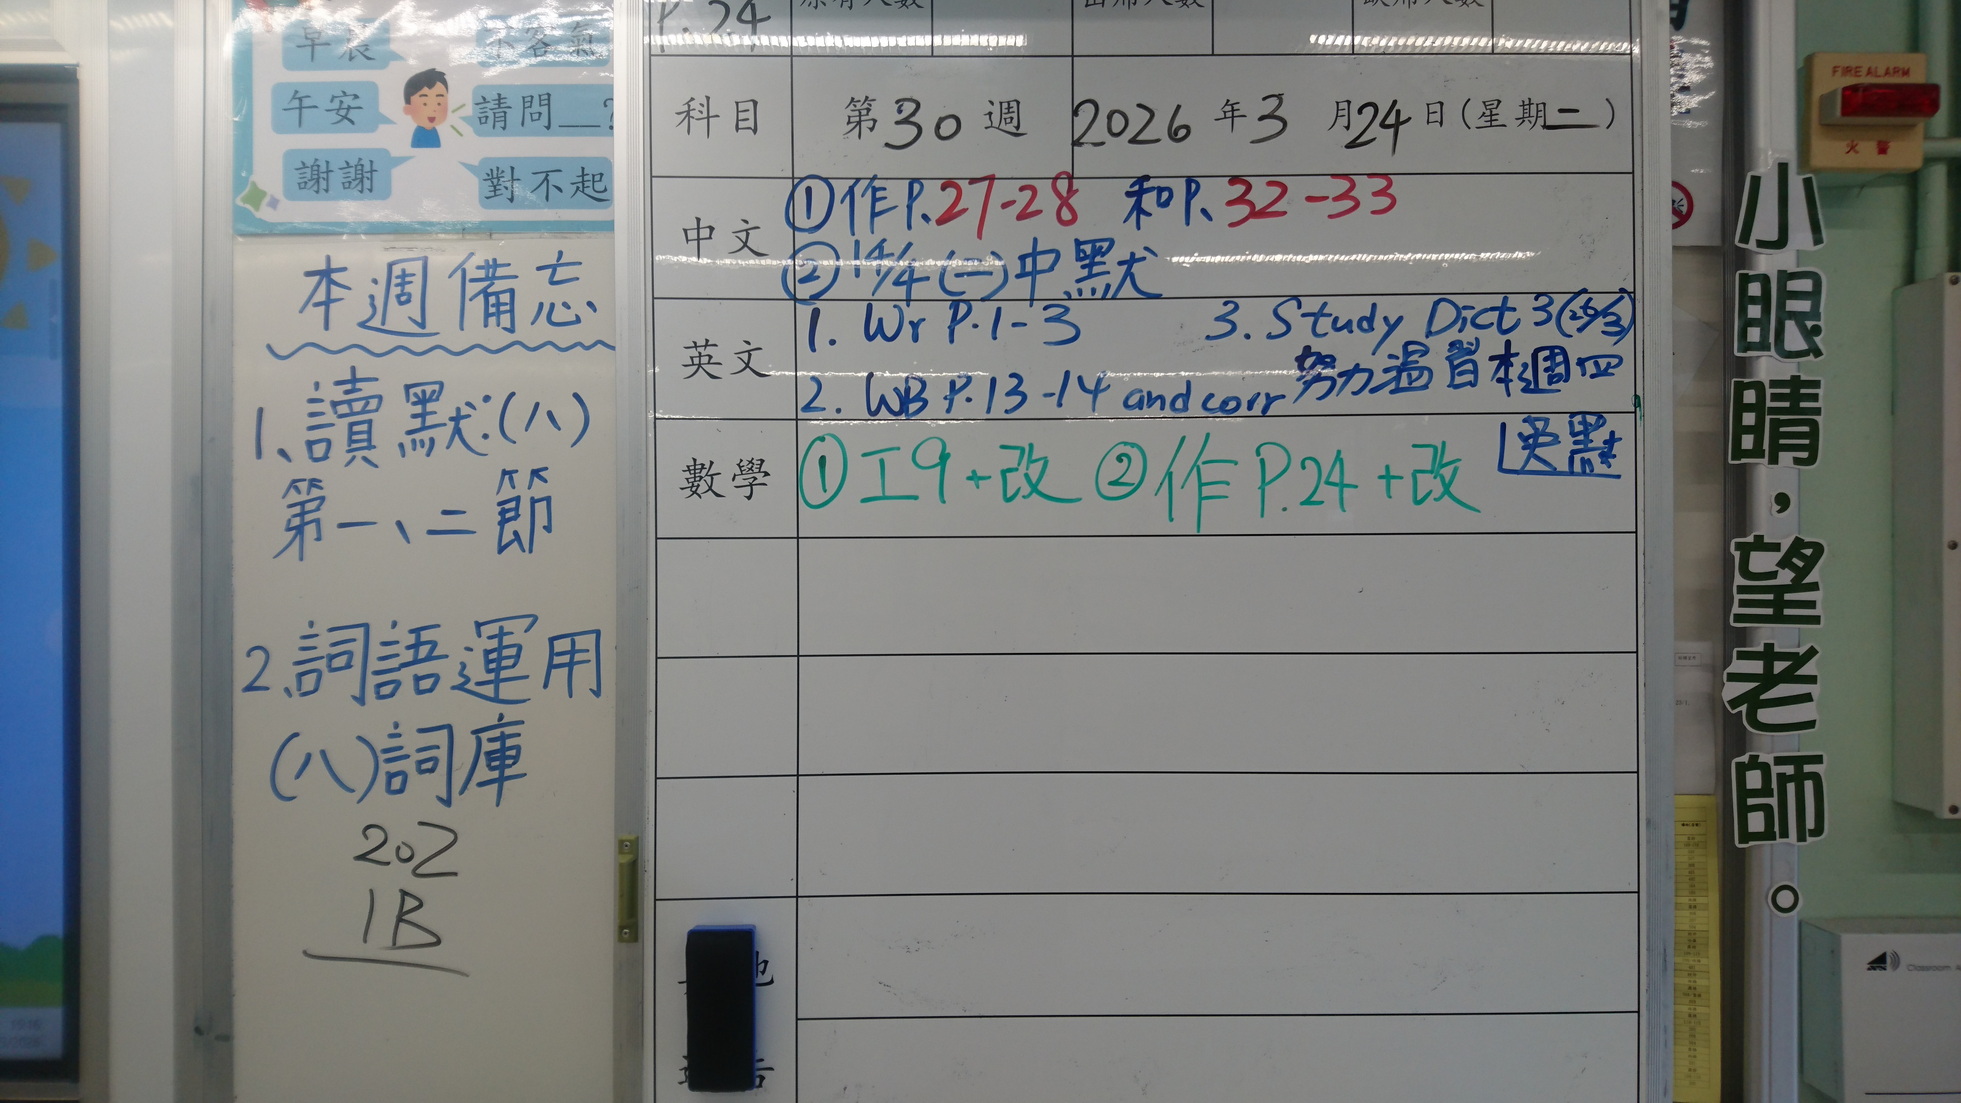 早晨
不客氣
午安
請問__?
謝謝
對不起
本週備忘
1、讀默:(八)
第一、二節
2、詞語運用
(八)詞庫
202
1B
P.24
科目 第30週 2026年3月24日(星期二)
中文 ①作P.27-28 和P.32-33
②14/4(一)中默
英文 1. Wr P.1-3 3. Study Dict 3(26/3)
2. WB P.13-14 and corr 努力溫習本週四
英默
數學 ①工9+改 ②作P.24+改
小眼睛,望老師。
FIRE ALARM
火警
Classroom